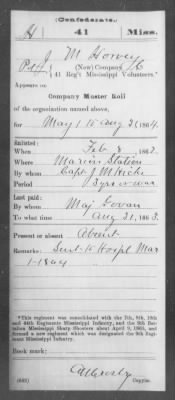 (Confederate.)
H 41 Miss.
J M Horvey
Pvt, (New) Company C
41 Reg't Mississippi Volunteers.*
Appears on
Company Muster Roll
of the organization named above,
for May 1 to Aug 31, 1864.
Enlisted:
When Feb 8, 186
Where Marion Station
By whom Capt J M Hicks
Period 3 yrs or war
Last paid:
By whom Maj Govan
To what time Aug 31, 1863.
Present or absent Absent
Remarks: Sent to Hospl Mar
1-1864
*This regiment was consolidated with the 7th, 9th, 10th
and 44th Regiments Mississippi Infantry, and the 9th Bat-
talion Mississippi Sharp Shooters about April 9, 1865, and
formed a new regiment which was designated the 9th Regi-
ment Mississippi Infantry.
Book mark:
(642) Copyist.